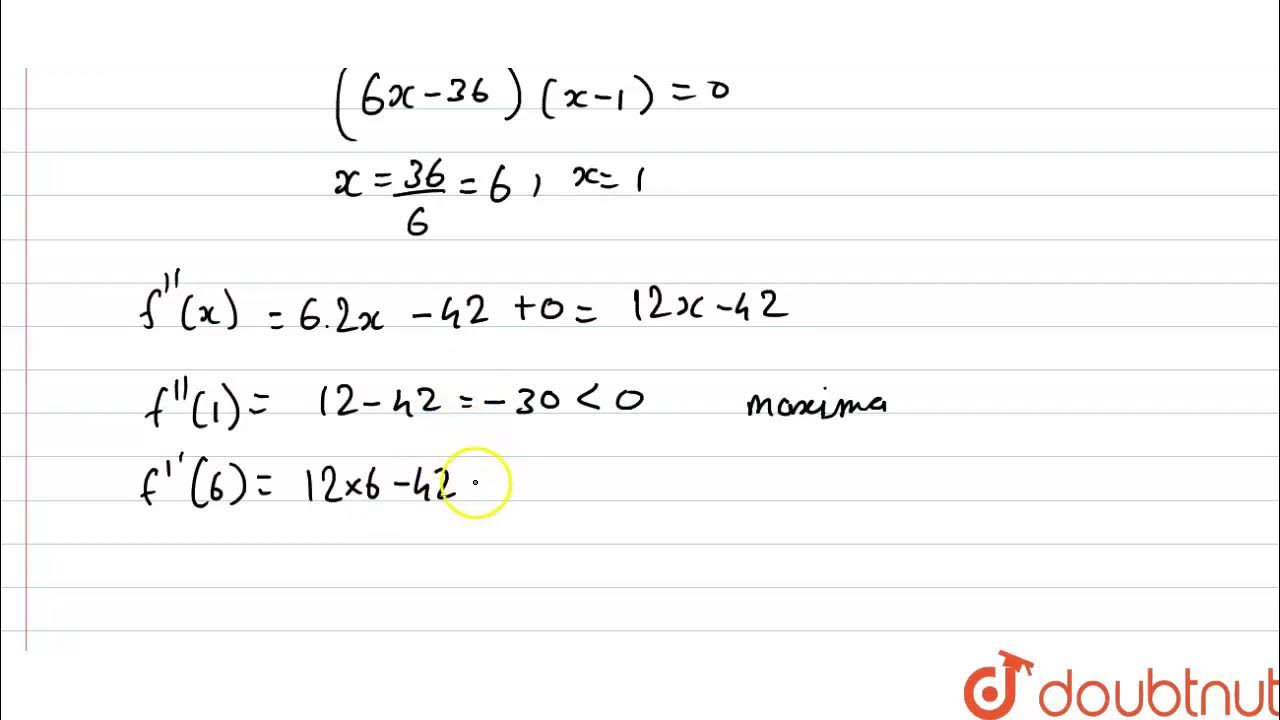 (6x-36)(x-1)=0
x=36/6=6, x=1
f''(x) = 6.2x -42 +0= 12x-42
f''(1)= 12-42=-30<0 maxima
f''(6)= 12×6-42
doubtnut